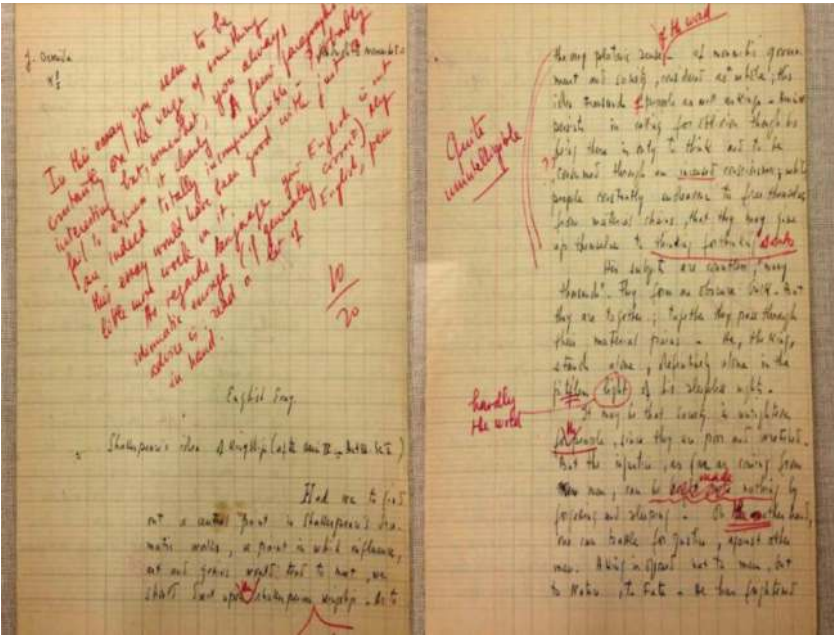 J. Derrida
K½
In this essay you seem to be
constantly on the verge of something
interesting but, somewhat, you always
fail to explain it clearly. A few paragraphs
are indeed totally incomprehensible. Probably
this essay would have been good with just a
little more work in it.
As regards language your English is not
idiomatic enough (if generally correct). My
advice is: read a lot of English, pen
in hand.
10
20
English Essay.
Shakespeare's idea of kingship
Had we to find
out a central point in Shakespeare's dra-
matic works, a point in which influence,
art and genius would tend to meet, we
should upon shakespearian kingship.
of the word
Quite
unintelligible
the very platonic sense of monarchic govern-
ment and society, considered as a whole; the
people are not
persist in
being there is only to think and to be
consumed through an incessant consciousness; while
people constantly endeavour to free themselves
from material chains, that they may give
up themselves to thinking for thinking's sake
His subjects are countless, "many
thousand". They form an obscure bulk. But
they are together; together they pass through
their material pains. He, the King,
stands alone, definitely alone in the
light of his sleepless nights.
hardly
the word
It may be that society is unrighteous
people, since they are poor and wretched.
But the injustice, as far as coming from
men, can be made nothing by
forgetting and sleeping. On the other hand,
one can battle for justice, against other
men. A king is opposed not to men, but
to Nature, to Fate. He then frightened